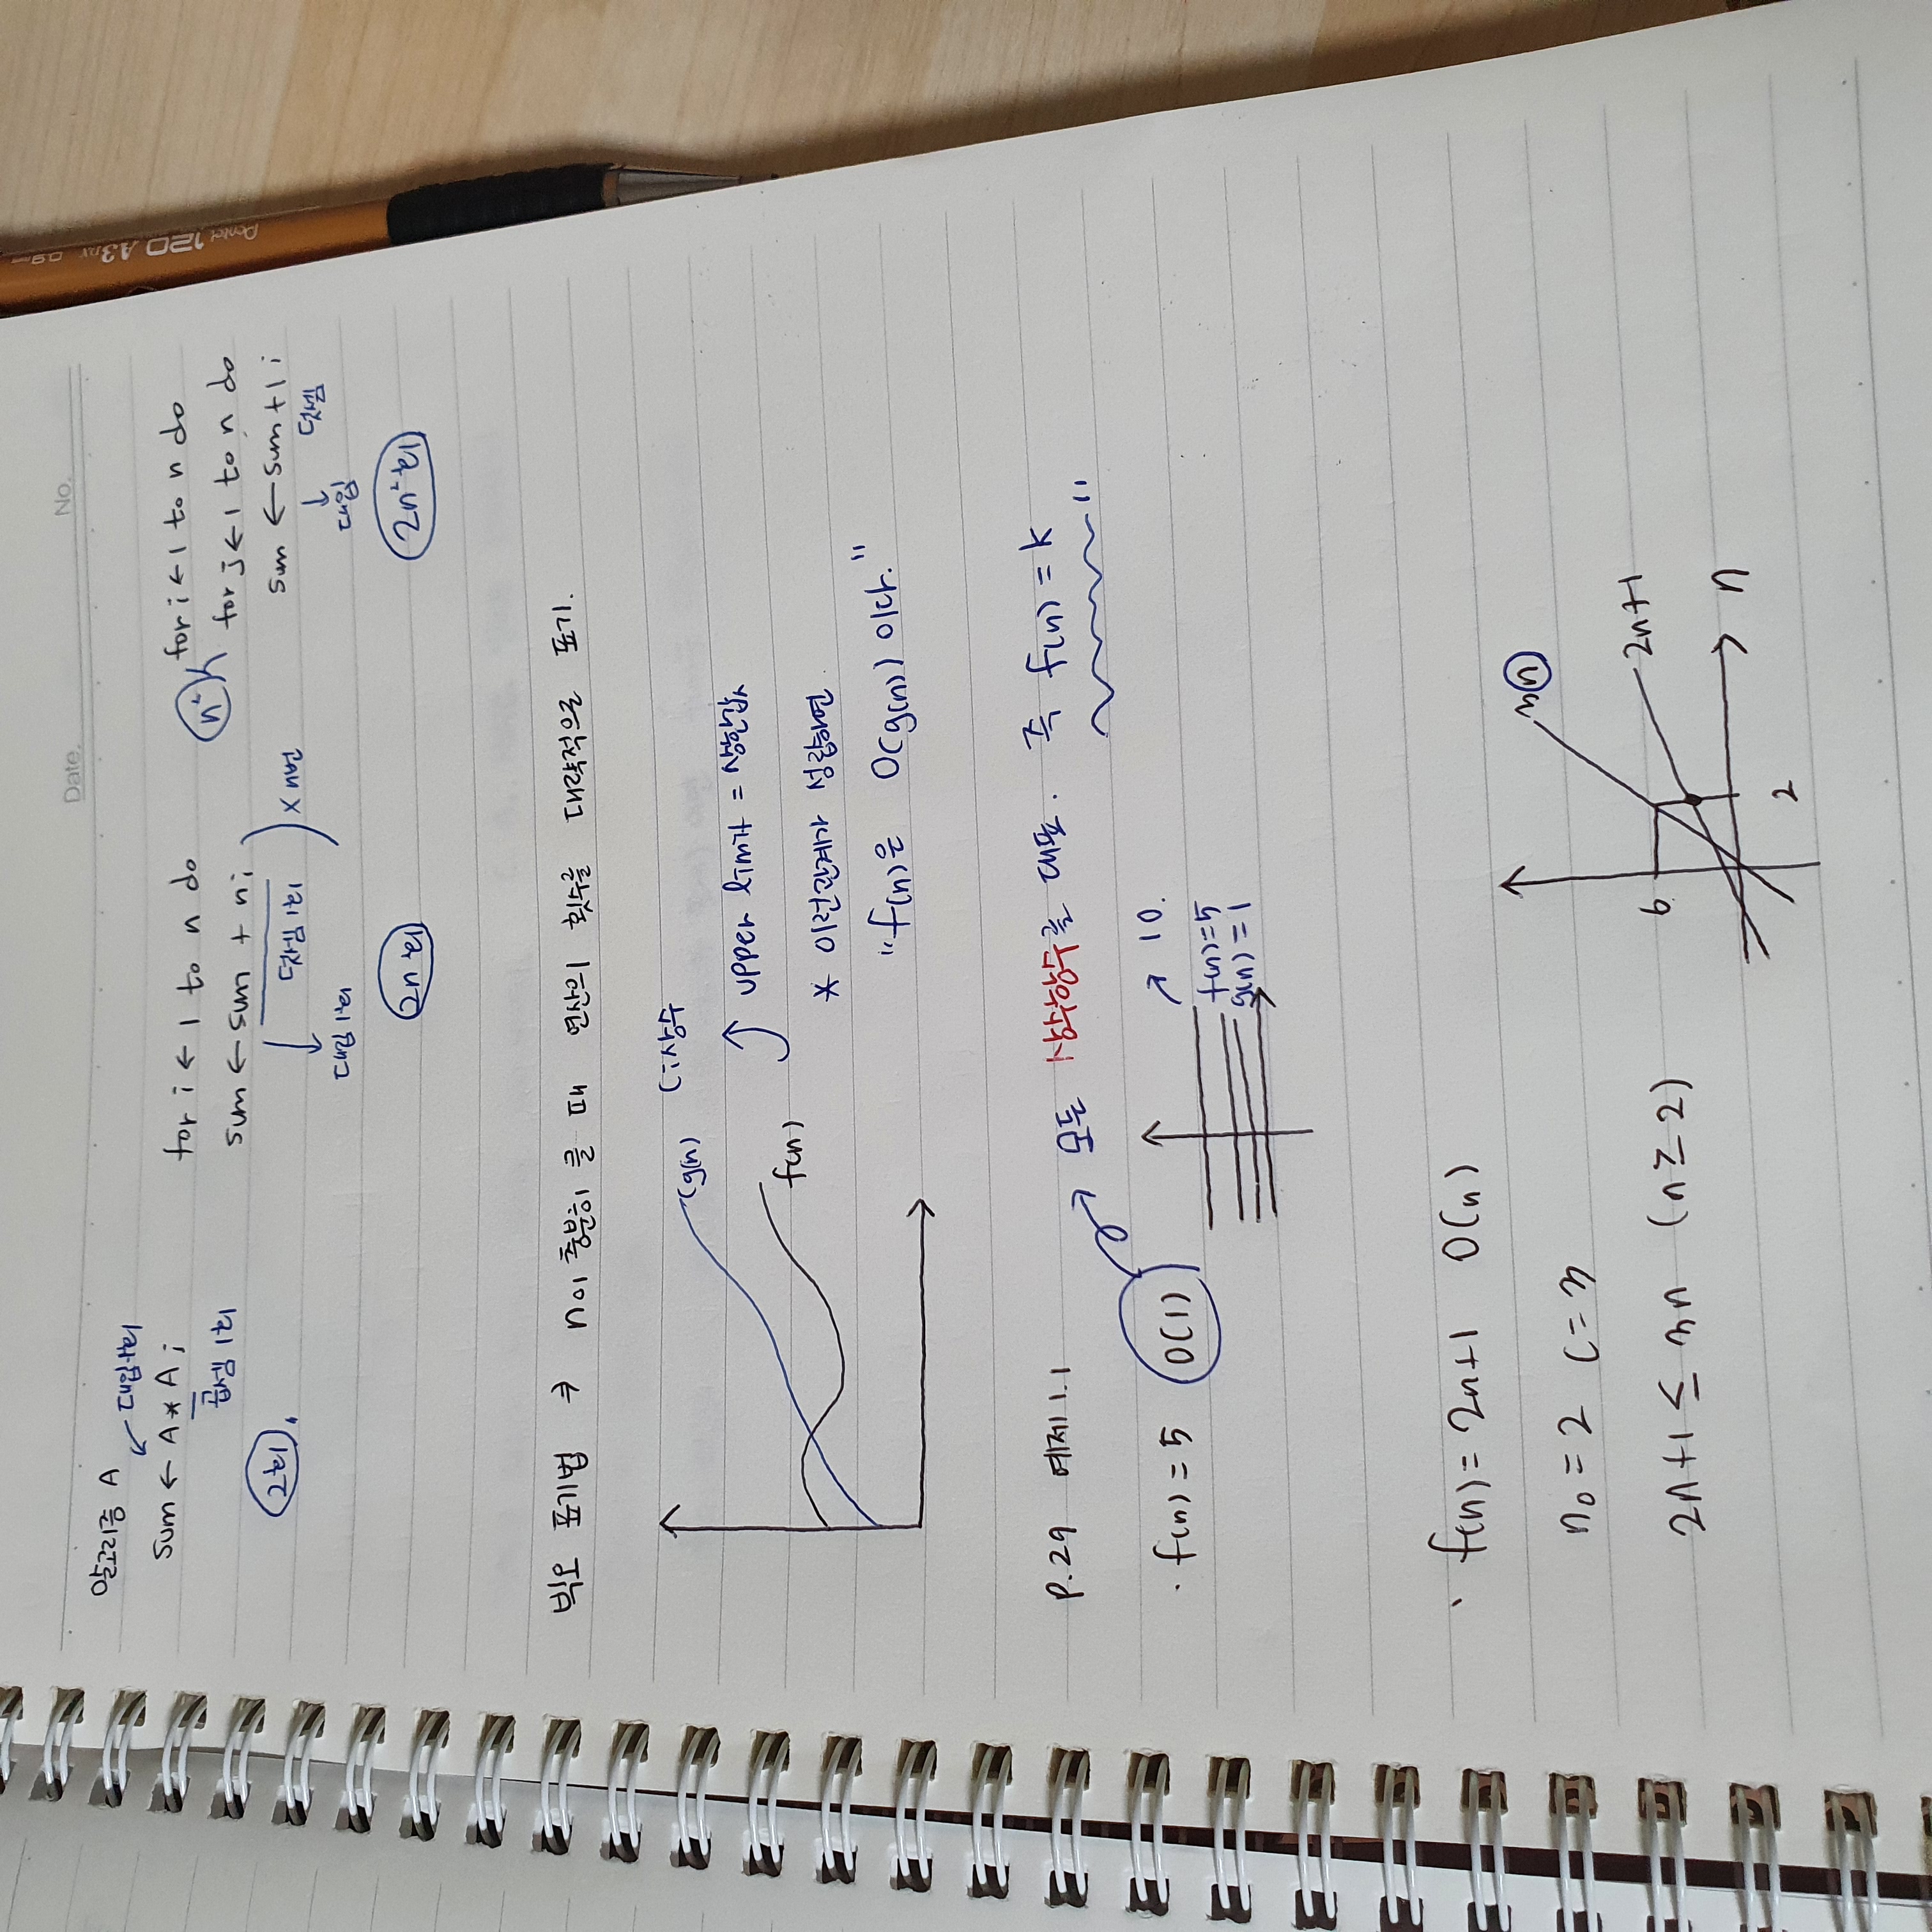 Date. No.
알고리즘 A
대입 1번
sum ← A * A ;
곱셈 1번
2번
for i ← 1 to n do
sum ← sum + n;
덧셈 1번
대입 1번
× n번
2n번
n²
for i ← 1 to n do
for j ← 1 to n do
sum ← sum + 1 ;
덧셈
대입
2n²번
빅오 표기법 ⇒ n이 충분히 클 때 연산의 횟수를 대략적으로 표기.
cg(n) C;상수
upper limit = 상한값
f(n)
* 이런관계가 성립하면
"f(n)은 O(g(n)) 이다."
P.29 예제1.1
모든 상수함수를 대표. 즉 f(n) = k
· f(n) = 5 O(1)
10.
f(n)=5
g(n) = 1
· f(n) = 2n+1 O(n)
n₀ = 2 c = 3
2n+1 ≤ 3n (n ≥ 2)
3n
2n+1
6
n
2
Pentel 120 A3DX 0.9